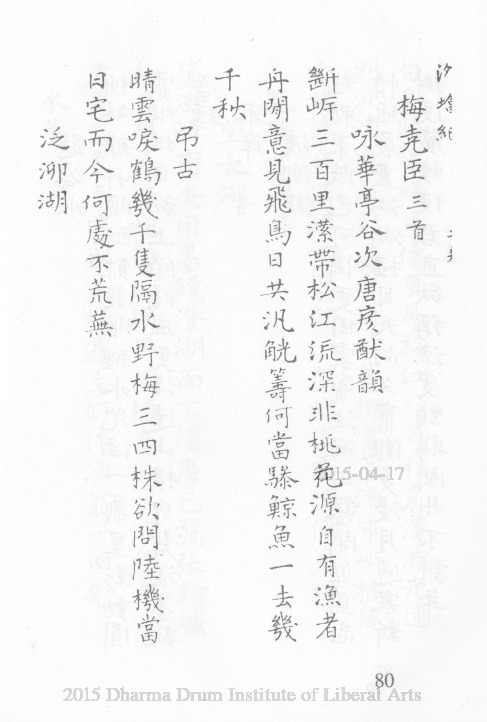 梅堯臣三首
咏華亭谷次唐彥猷韻
斷岸三百里瀠帶松江流深非桃花源自有漁者
舟閒意見飛鳥日共汎觥籌何當驂鯨魚一去幾
千秋
吊古
晴雲唳鶴幾千隻隔水野梅三四株欲問陸機當
日宅而今何處不荒蕪
泛泖湖
2015-04-17
80
2015 Dharma Drum Institute of Liberal Arts